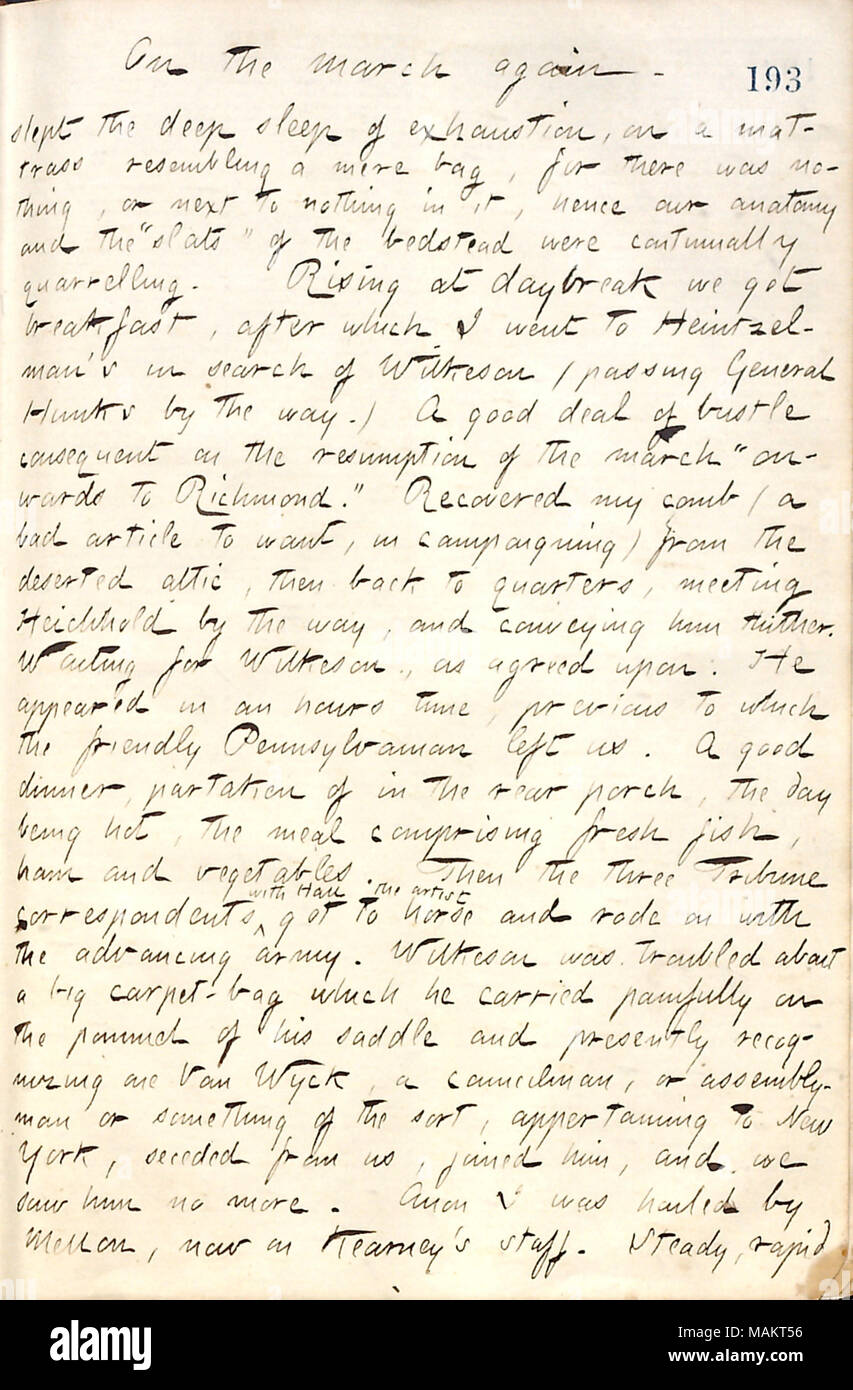 On the march again -
193
slept the deep sleep of exhaustion, on a mat-
trass resembling a mere bag, for there was no-
thing, or next to nothing in it, hence our anatomy
and the "slats" of the bedstead were continually
quarrelling. Rising at daybreak we got
breakfast, after which I went to Heintzel-
man's in search of Wilkeson (passing General
Hunks by the way.) A good deal of bustle
consequent on the resumption of the march "on-
wards to Richmond." Recovered my comb (a
bad article to want, in campaigning) from the
deserted attic, then back to quarters, meeting
Heichhold by the way, and conveying him thither.
Waiting for Wilkeson, as agreed upon. He
appeared in an hours time, previous to which
the friendly Pennsylvanian left us. A good
dinner, partaken of in the rear porch, the day
being hot, the meal comprising fresh fish,
ham and vegetables. Then the three Tribune
with Hall the artist
correspondents, ^ got to horse and rode on with
the advancing army. Wilkeson was troubled about
a big carpet-bag which he carried painfully on
the pommel of his saddle and presently recog-
nizing one Van Wyck, a councilman, or assembly-
man or something of the sort, appertaining to New
York, seceded from us, joined him, and we
saw him no more. Anon I was hailed by
Mellon, now on Kearney's staff. Steady, rapid
alamy
Image ID: MAKT56
www.alamy.com